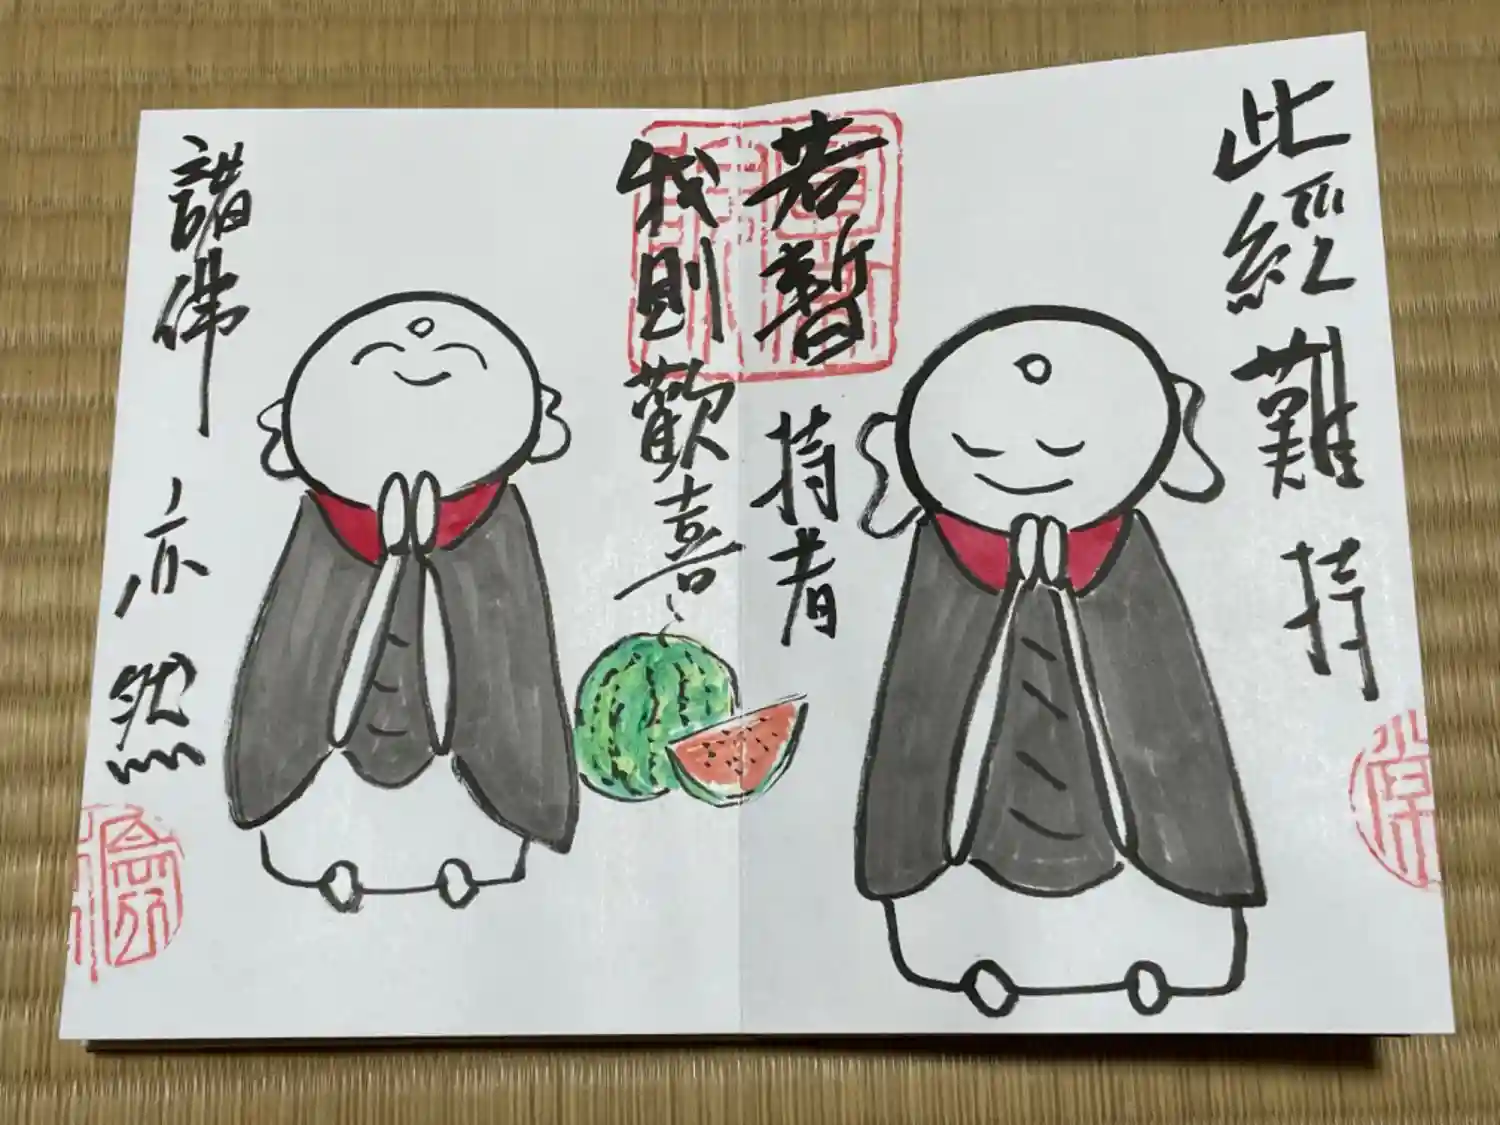 此經難持
若暫
持者
我則歡喜
諸佛
亦然